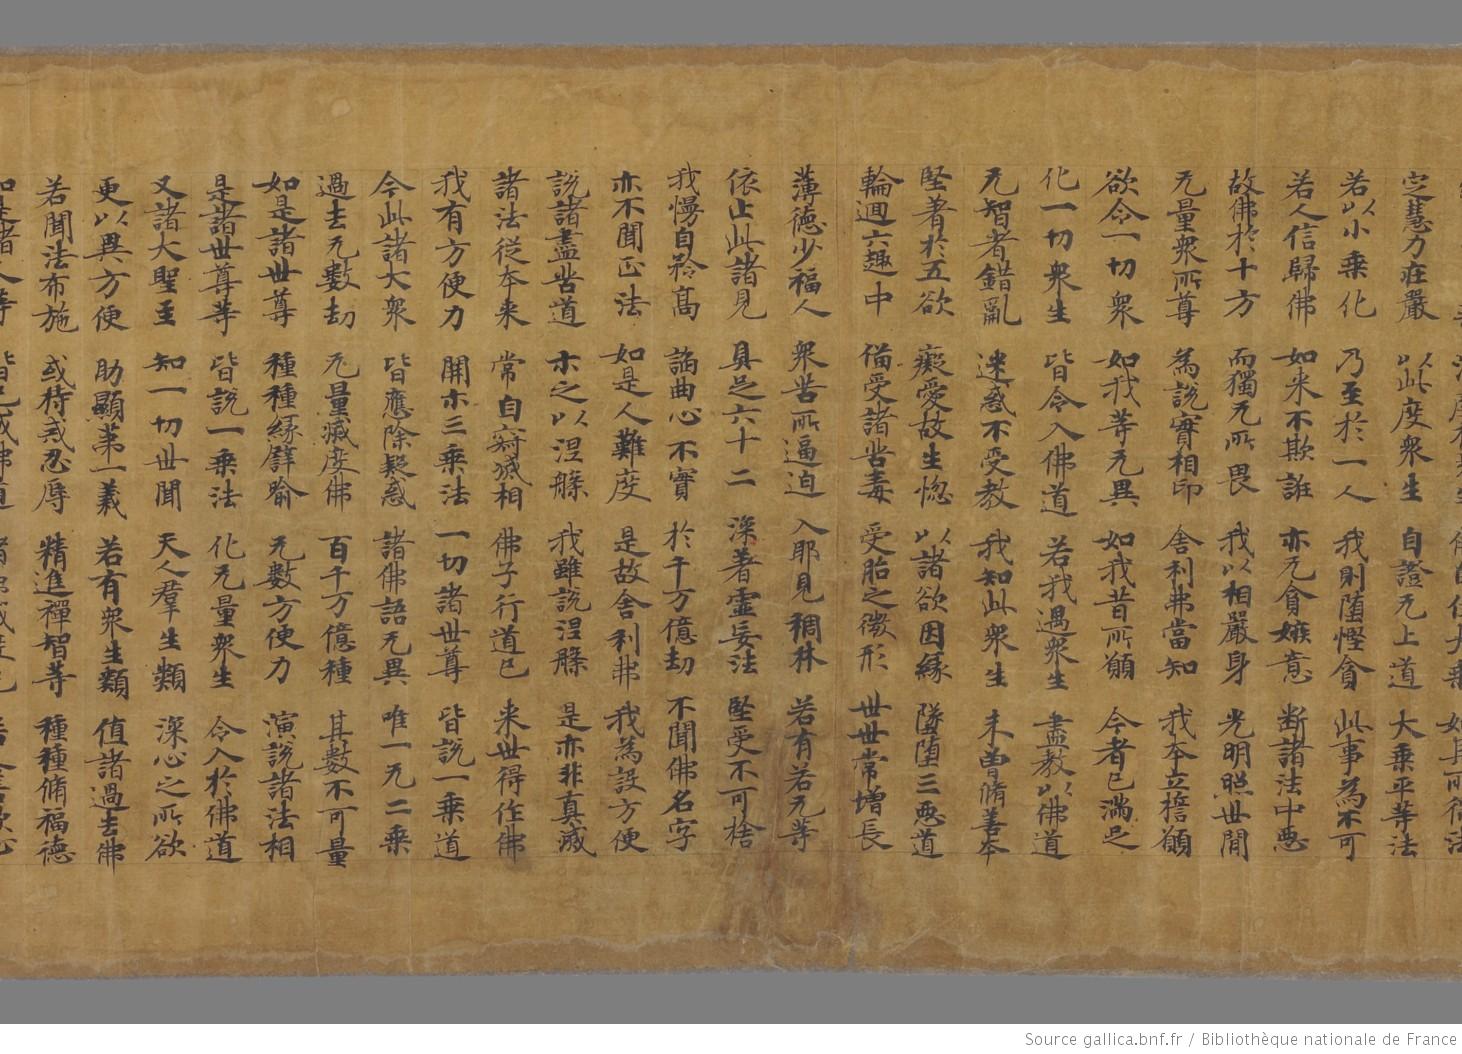 定慧力莊嚴 以此度衆生 自證无上道 大乘平等法
若以小乘化 乃至於一人 我則墮慳貪 此事為不可
若人信歸佛 如来不欺誑 亦无貪嫉意 断諸法中惡
故佛於十方 而獨无所畏 我以相嚴身 光明照世間
无量衆所尊 為說實相印 舍利弗當知 我本立擔願
欲令一切衆 如我等无異 如我昔所願 今者已満足
化一切衆生 皆令入佛道 若我遇衆生 盡教以佛道
无智者錯亂 迷惑不受教 我知此衆生 未曾脩善本
堅著於五欲 癡愛故生惚 以諸欲因緣 墜墮三惡道
輪迴六趣中 備受諸苦毒 受胎之微形 世世常增長
薄德少福人 衆苦所逼迫 入耶見稠林 若有若无等
依止此諸見 具足六十二 深著虛妄法 堅受不可捨
我慢自矜髙 諂曲心不實 於千万億劫 不聞佛名字
亦不聞正法 如是人難度 是故舍利弗 我為設方便
說諸盡苦道 示之以涅槃 我雖說涅槃 是亦非真滅
諸法從本来 常自寂滅相 佛子行道已 来世得作佛
我有方便力 開示三乘法 一切諸世尊 皆說一乘道
今此諸大衆 皆應除疑惑 諸佛語无異 唯一无二乘
過去无數劫 无量滅度佛 百千万億種 其數不可量
如是諸世尊 種種緣譬喻 无數方便力 演說諸法相
是諸世尊等 皆說一乘法 化无量衆生 令入於佛道
又諸大聖主 知一切世間 天人羣生類 深心之所欲
更以異方便 助顯苐一義 若有衆生類 值諸過去佛
若聞法布施 或持戒忍辱 精進禪智等 種種脩福德
Source gallica.bnf.fr / Bibliothèque nationale de France